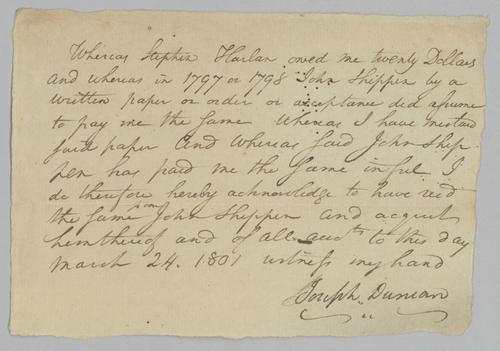 Whereas Stephen Harlan owed me twenty Dollars
and whereas in 1797 or 1798 John Shippen by a
written paper or order or acceptance did assume
to pay me the same Whereas I have mislaid
said paper And Whereas said John Ship-
pen has paid me the same in full I
do therefore hereby acknowledge to have recd
the same from John Shippen and acquit
him thereof and of all acots to this day
March 24. 1801 witness my hand
Joseph Duncan